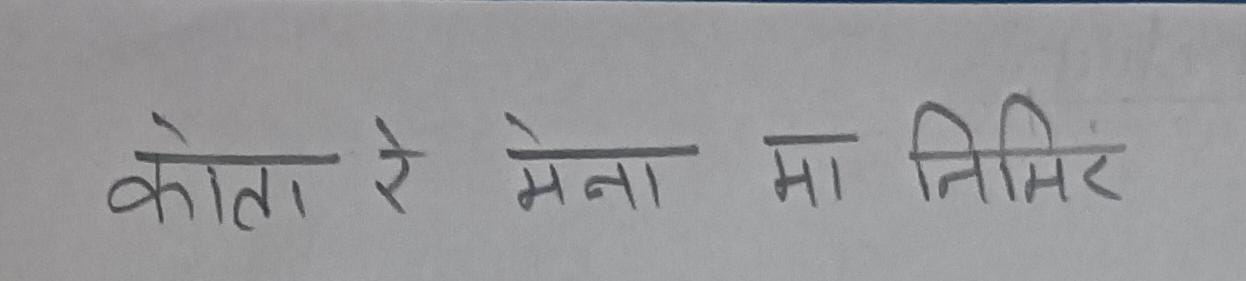 कोता रे मेना मा निमिरं